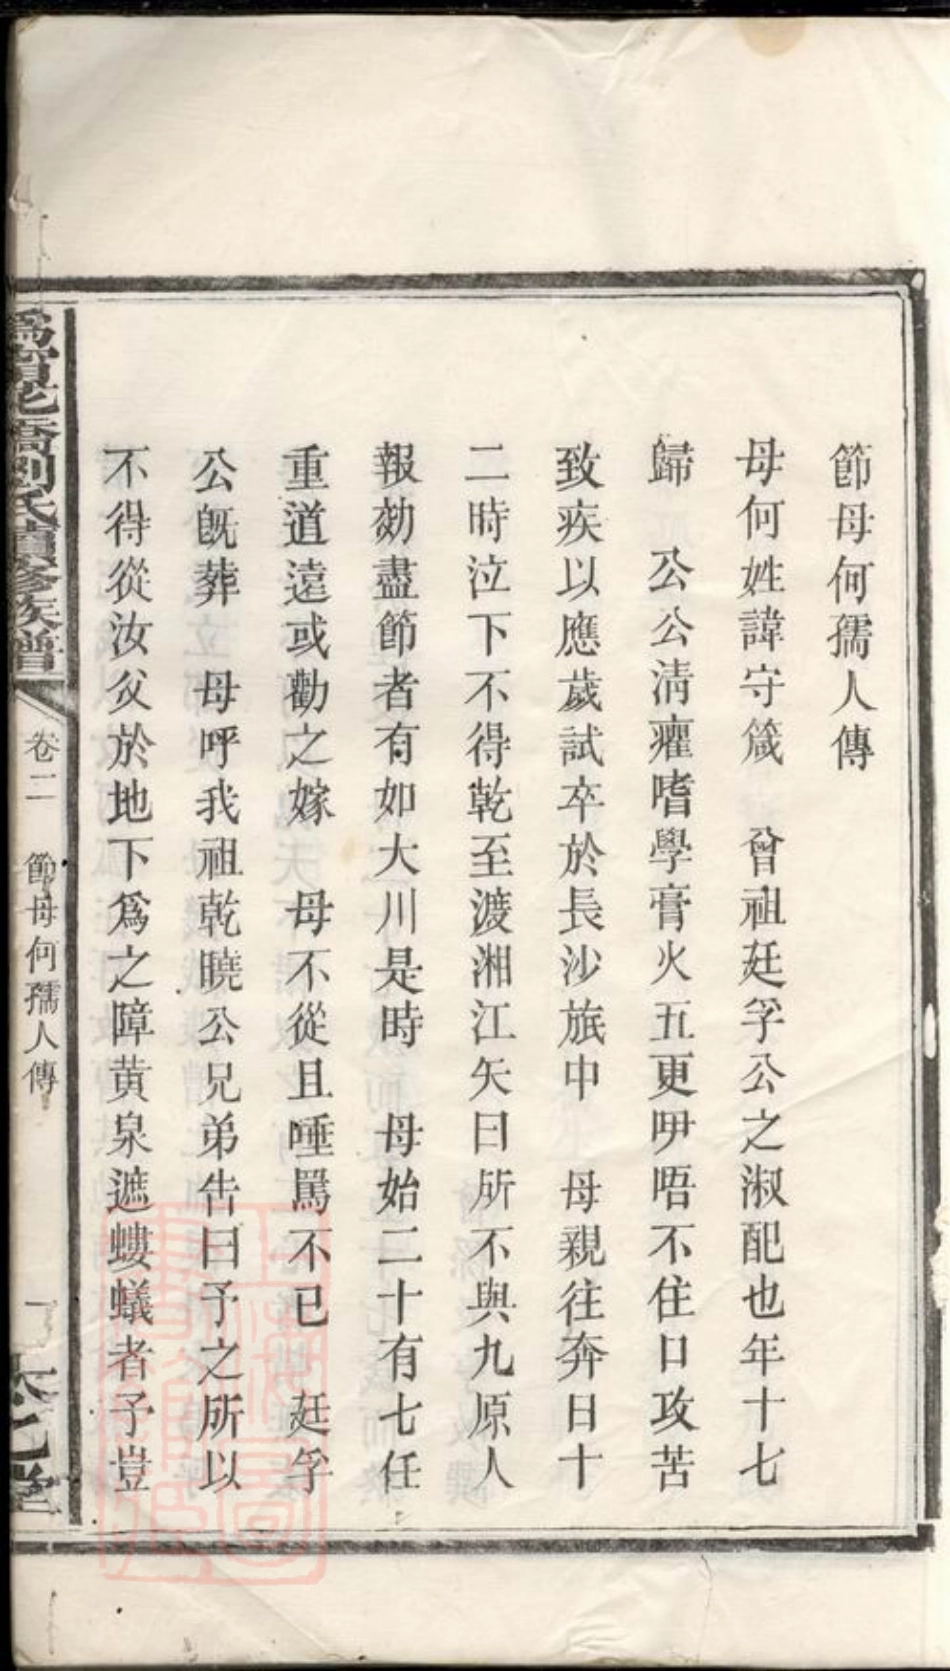 節母何孺人傳
母何姓諱守箴　曾祖廷孚公之淑配也年十七
歸　公公清癯嗜學膏火五更吚唔不住口攻苦
致疾以應歲試卒於長沙旅中　母親往奔日十
二時泣下不得乾至渡湘江矢曰所不與九原人
報効盡節者有如大川是時　母始二十有七任
重道遠或勸之嫁　母不從且唾罵不已　廷孚
公旣葬　母呼我祖乾曉公兄弟告曰予之所以
不得從汝父於地下爲之障黃泉遮螻蟻者予豈
橋劉氏續修族譜
卷二　節母何孺人傳